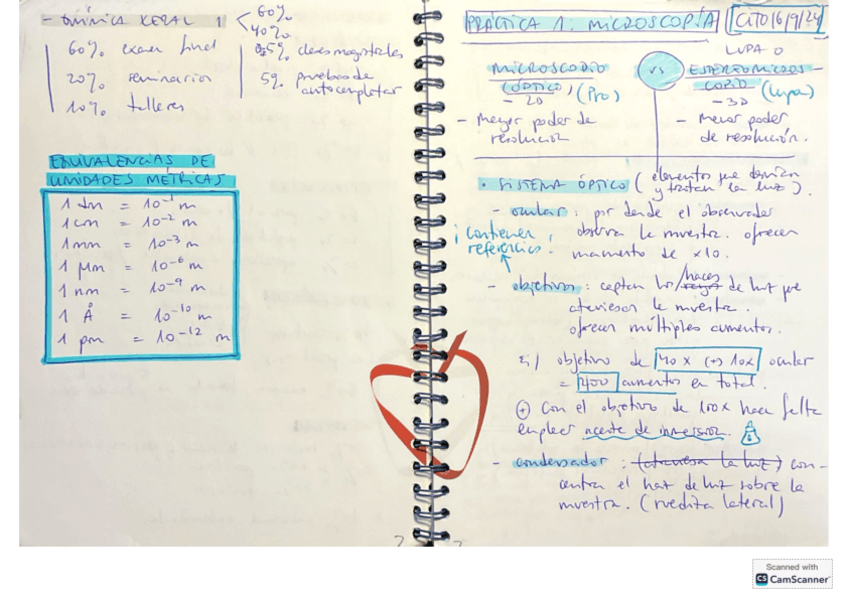 - QUÍMICA XERAL 1
60%
40%
60% exame final
20% seminarios
10% talleres
5% clases magistrales
5% pruebas de
autocompletar
EQUIVALENCIAS DE
UNIDADES MÉTRICAS
1 dm = 10⁻¹ m
1 cm = 10⁻² m
1 mm = 10⁻³ m
1 μm = 10⁻⁶ m
1 nm = 10⁻⁹ m
1 Å = 10⁻¹⁰ m
1 pm = 10⁻¹² m
PRÁCTICA 1. MICROSCOPÍA
CITO 16/9/24
MICROSCOPIO
(ÓPTICO) (Pro)
- 2D
- Mayor poder de
resolución
VS
LUPA O
ESTEREOMICROS-
COPIO (Lupa)
- 3D
- Menor poder
de resolución.
· SISTEMA ÓPTICO ( elementos que dominan
y tratan la luz ).
- ocular : por donde el observador
observa la muestra. ofrecen
aumento de x10.
¡ Contienen
referencias !
- objetivos : captan los haces de luz que
atraviesan la muestra.
ofrecen múltiples aumentos.
Ej objetivo de 40x (+) 10x ocular
= 400 aumentos en total.
⊕ Con el objetivo de 100x hace falta
emplear aceite de inmersión.
- condensador : (atraviesa la luz) con-
centra el haz de luz sobre la
muestra. (ruedita lateral)
Scanned with
CS CamScanner